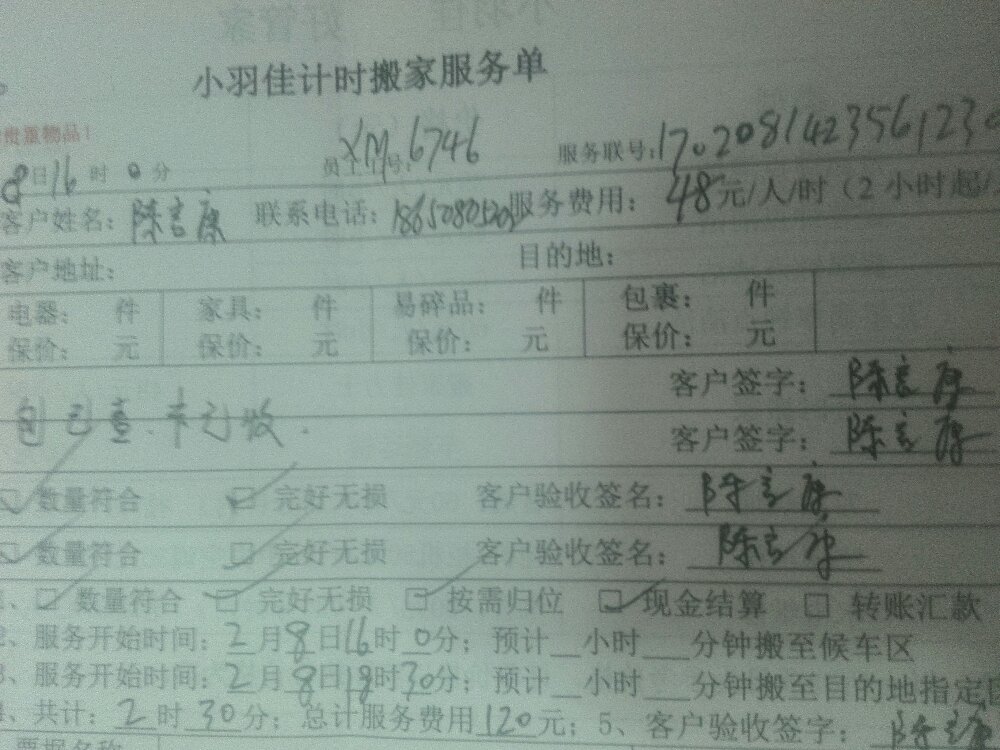 小羽佳计时搬家服务单
贵重物品！
8日16时0分 员工工号：XM6746 服务联号：1702081423561230
客户姓名： 联系电话：1865080 服务费用：48元/人/时（2小时起/
客户地址： 目的地：
电器： 件 家具： 件 易碎品： 件 包裹： 件
保价： 元 保价： 元 保价： 元 保价： 元
客户签字：
包已查 卡已收． 客户签字：
☑ 数量符合 ☑ 完好无损 客户验收签名：
☑ 数量符合 ☑ 完好无损 客户验收签名：
1、☑ 数量符合 ☑ 完好无损 ☑ 按需归位 ☑ 现金结算 □ 转账汇款
2、服务开始时间：2月8日16时0分；预计__小时___分钟搬至候车区
3、服务开始时间：2月8日18时30分；预计__小时___分钟搬至目的地指定
4、共计：2时30分；总计服务费用120元；5、客户验收签字：
票据名称